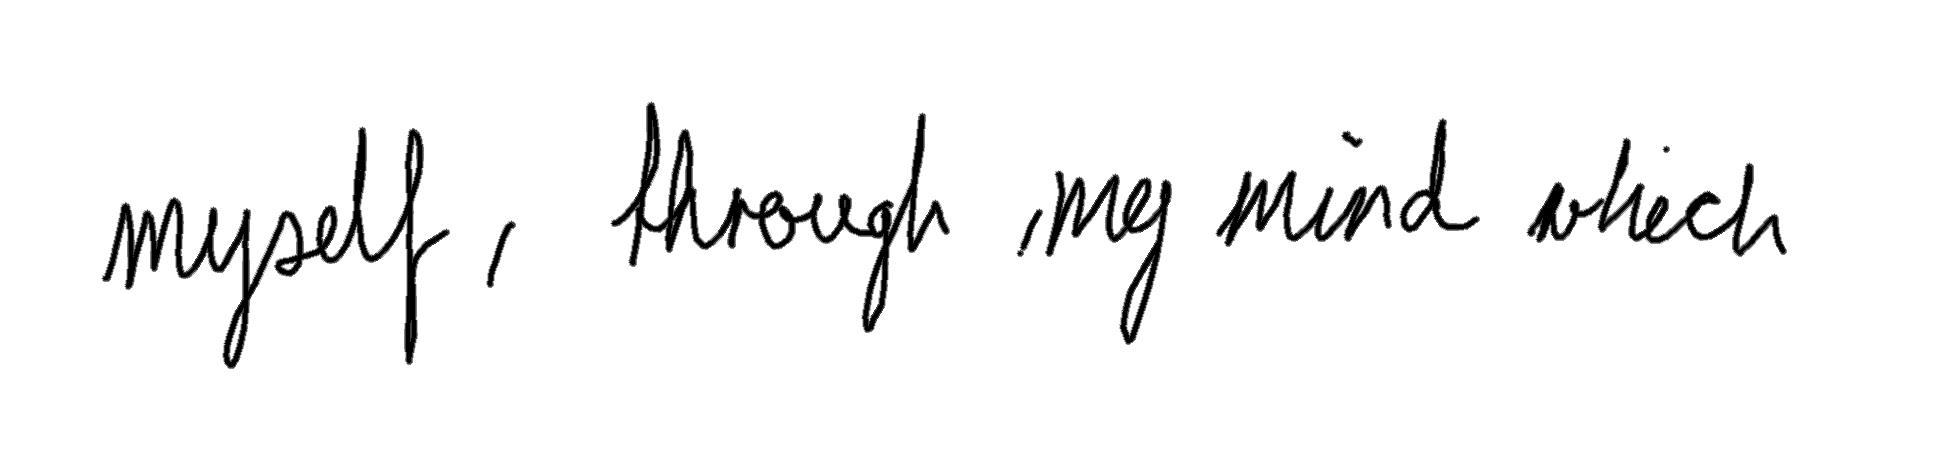 myself, through, my mind which